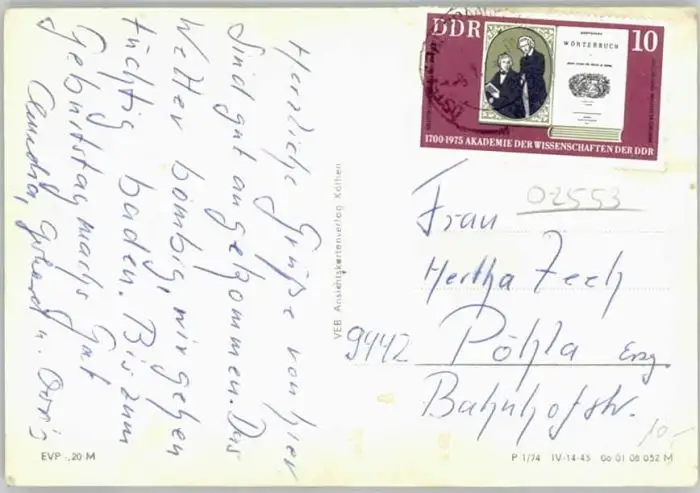 Herzliche Grüße von hier
Sind gut angekommen. Das
Wetter bombig, wir gehen
tüchtig baden. Bis zum
Geburtstag machs Gut
Claudia, Gerhard u. Doris
DDR 10
WÖRTERBUCH
1700-1975 AKADEMIE DER WISSENSCHAFTEN DER DDR
02553
Frau
Hertha Zeeh
9442 Pöhla Erzg.
Bahnhofstr.
10-
VEB Ansichtskartenverlag Köthen
EVP -,20 M
P 1/74 IV-14-45 06 01 08 052 M